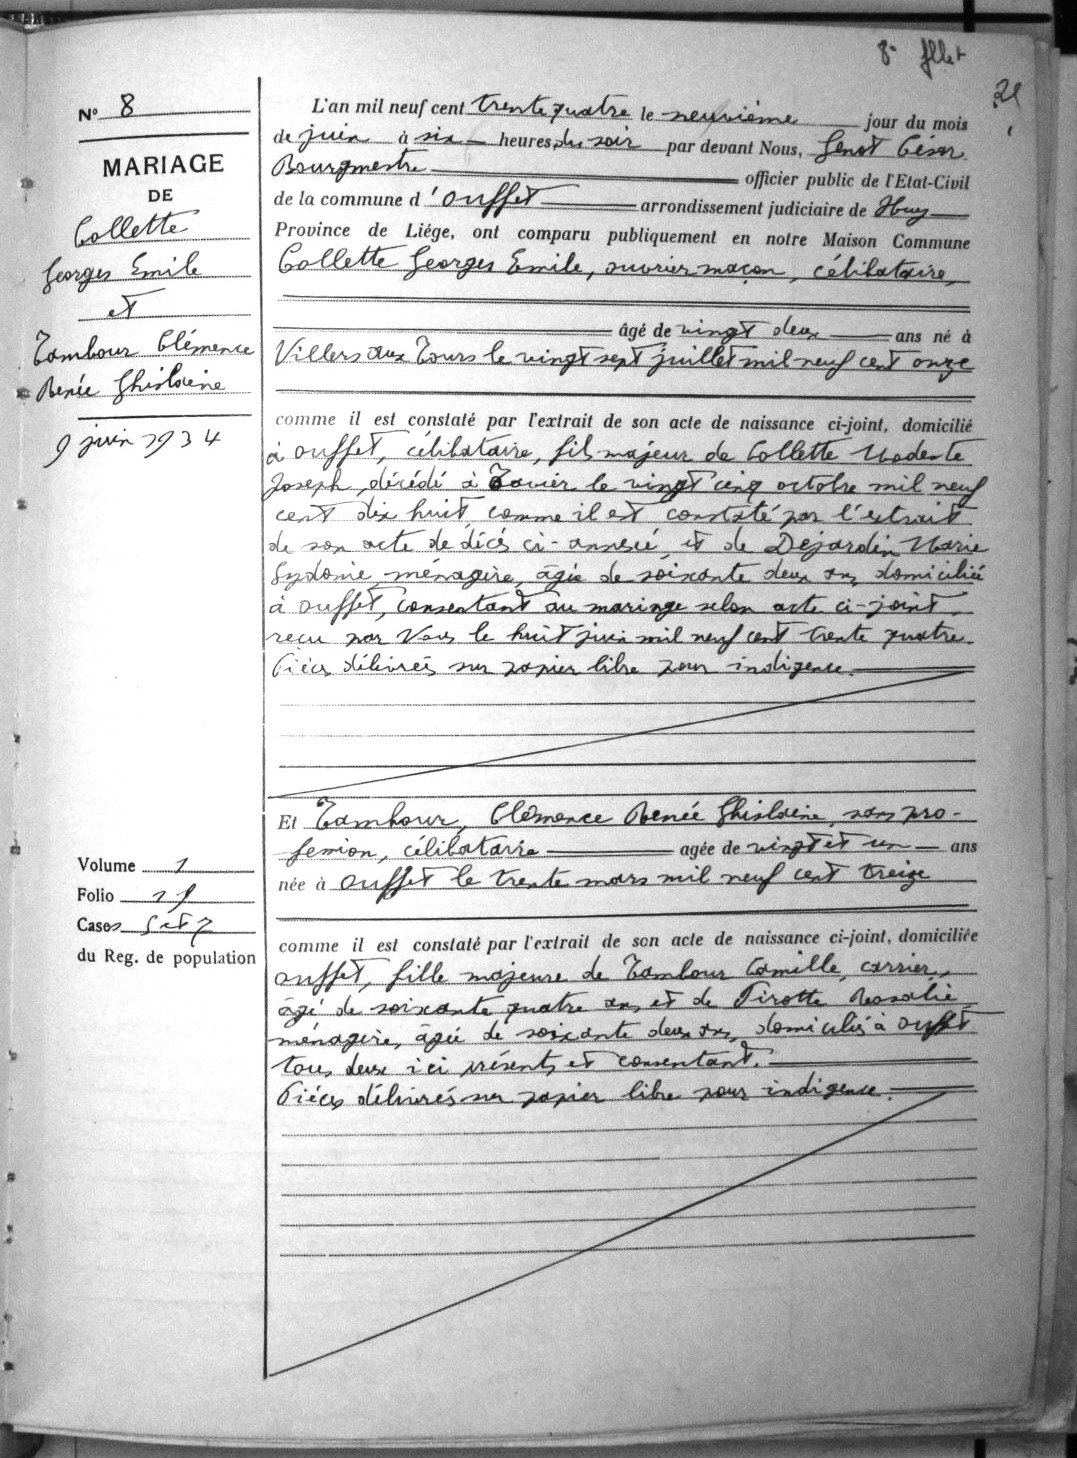 8e fllet
21
N° 8
MARIAGE
DE
Collette
Georges Emile
et
Tambour Clémence
Renée Ghislaine
9 juin 1934
L'an mil neuf cent trente quatre le neuvième jour du mois
de juin à six heures du soir par devant Nous, Genot César
Bourgmestre officier public de l'Etat-Civil
de la commune d'Ouffet arrondissement judiciaire de Huy
Province de Liége, ont comparu publiquement en notre Maison Commune
Collette Georges Emile, ouvrier maçon, célibataire,
âgé de vingt deux ans né à
Villers aux Tours le vingt sept juillet mil neuf cent onze
comme il est constaté par l'extrait de son acte de naissance ci-joint, domicilié
à Ouffet, célibataire, fils majeur de Collette Modeste
Joseph, décédé à Tavier le vingt cinq octobre mil neuf
cent dix huit comme il est constaté par l'extrait
de son acte de décès ci-annexé, et de Dejardin Marie
Sydonie, ménagère, âgée de soixante deux ans, domiciliée
à Ouffet, consentant au mariage selon acte ci-joint
reçu par Nous le huit juin mil neuf cent trente quatre.
Pièces délivrées sur papier libre pour indigence.
Et Tambour, Clémence Renée Ghislaine, sans pro-
fession, célibataire agée de vingt et un ans
née à Ouffet le trente mars mil neuf cent treize
Volume 1
Folio 19
Cases 5 et 7
du Reg. de population
comme il est constaté par l'extrait de son acte de naissance ci-joint, domiciliée
Ouffet, fille majeure de Tambour Camille, carrier,
âgé de soixante quatre ans et de Pirotte Rosalie
ménagère, âgée de soixante deux ans, domiciliés à Ouffet
tous deux ici présents et consentant.
Pièces délivrées sur papier libre pour indigence.